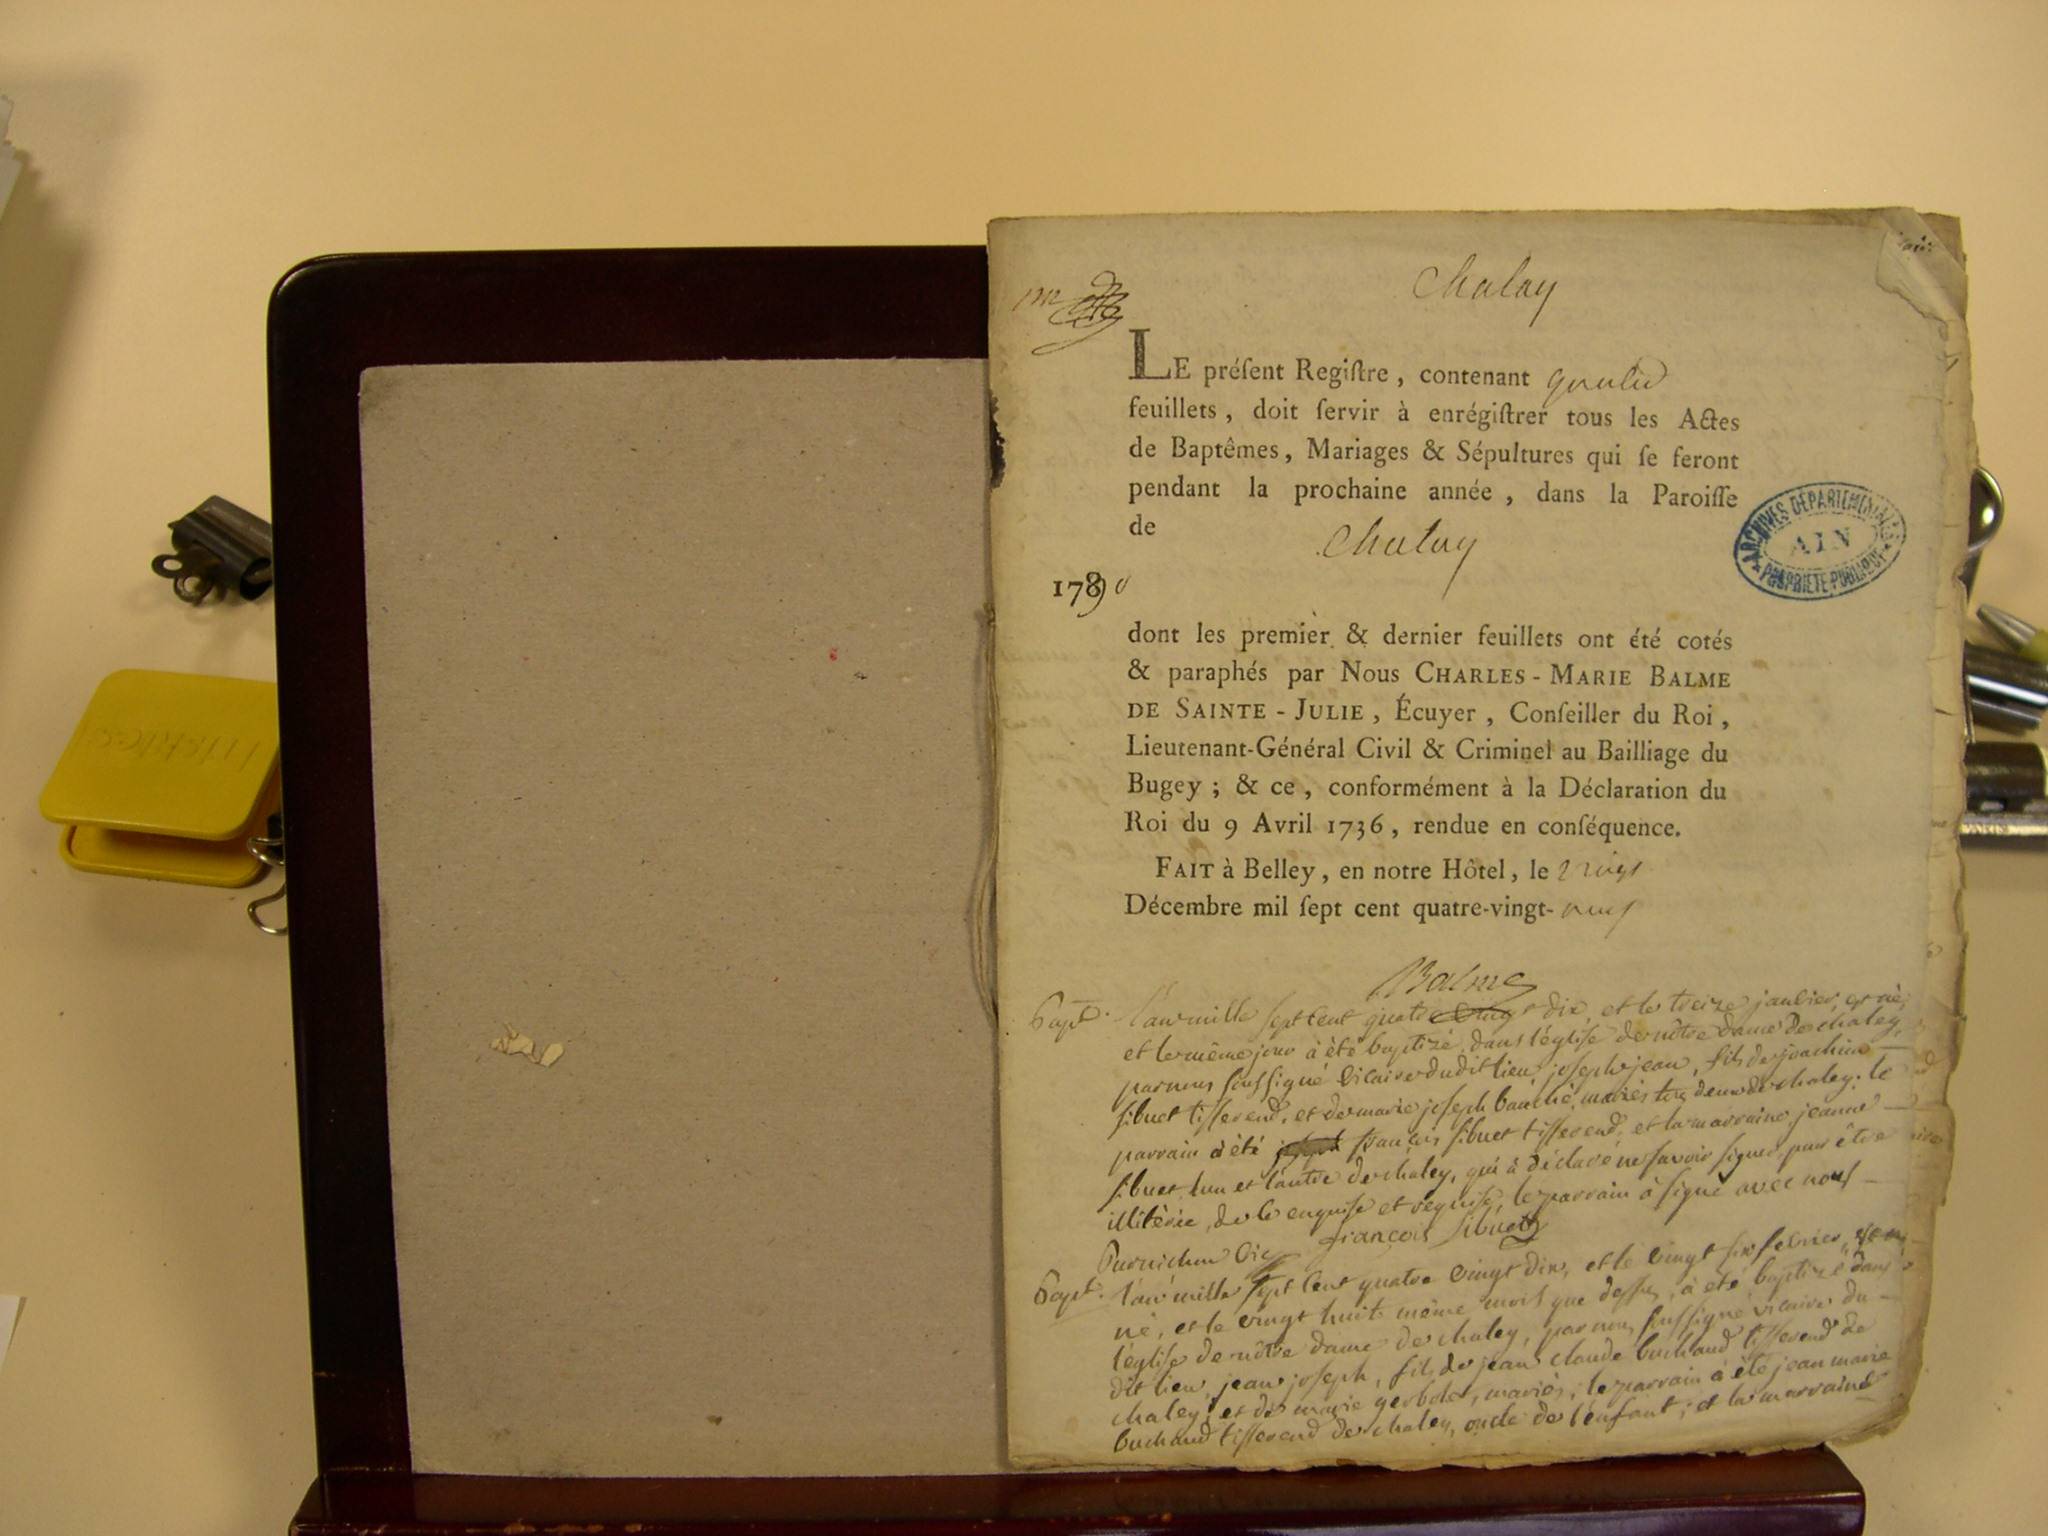 Chaley
LE préſent Regiſtre, contenant quatre
feuillets, doit ſervir à enrégiſtrer tous les Actes
de Baptêmes, Mariages & Sépultures qui ſe feront
pendant la prochaine année, dans la Paroiſſe
de Chaley
ARCHIVES DÉPARTEMENTALES
AIN
PROPRIÉTÉ PUBLIQUE
1790
dont les premier & dernier feuillets ont été cotés
& paraphés par Nous CHARLES-MARIE BALME
DE SAINTE-JULIE, Écuyer, Conſeiller du Roi,
Lieutenant-Général Civil & Criminel au Bailliage du
Bugey; & ce, conformément à la Déclaration du
Roi du 9 Avril 1736, rendue en conſéquence.
FAIT à Belley, en notre Hôtel, le vingt
Décembre mil ſept cent quatre-vingt-neuf
Balme
Bapt. l'an mille sept cent quatre vingt dix, et le treize janvier, est né,
et le même jour à été baptizé dans l'église de nôtre dame de chaley,
par nous soussigné vicaire dudit lieu, joseph jean, fils de joachim
sibuet tisserend, et de marie joseph mariés tous deux de chaley; le
parrain à été françois sibuet tisserend, et la marraine jeanne
sibuet, l'un et l'autre de chaley, qui à déclaré ne savoir signer, pour être
illitérée, de ce enquise et requise, le parrain à signé avec nous
françois Sibuet
vic
Bapt. l'an mille sept cent quatre vingt dix, et le vingt six fevrier, est
né, et le vingt huit même mois que dessus, à été baptizé dans
l'église de nôtre dame de chaley, par nous soussigné vicaire du
dit lieu, jean joseph, fils de jean claude buchaud tisserend de
chaley, et de marie mariés; le parrain à été jean marie
buchaud tisserend de chaley, oncle de l'enfant; et la marraine